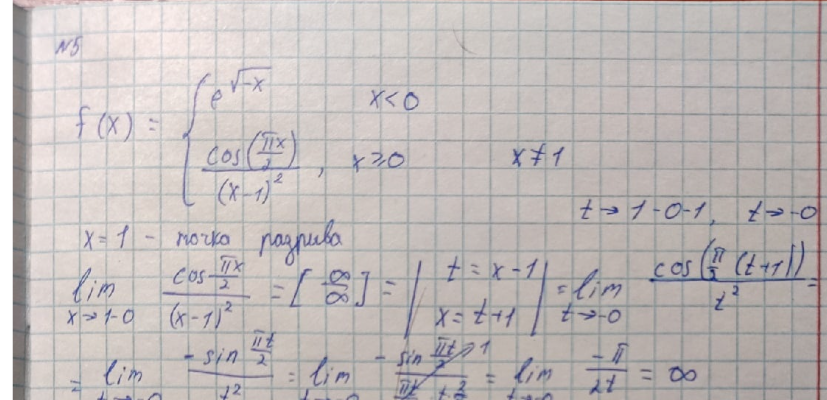 №5
f(x) = { e^√-x x<0
cos(πx/2)/(x-1)^2 , x⩾0 x≠1
t→1-0-1, t→-0
x=1 - точка разрыва
lim x→1-0 cos πx/2 / (x-1)^2 = [∞/∞] = | t=x-1 x=t+1 | = lim t→-0 cos(π/2 (t+1)) / t^2 =
= lim t→-0 -sin πt/2 / t^2 = lim -sin πt/2 = lim -π/2t = ∞